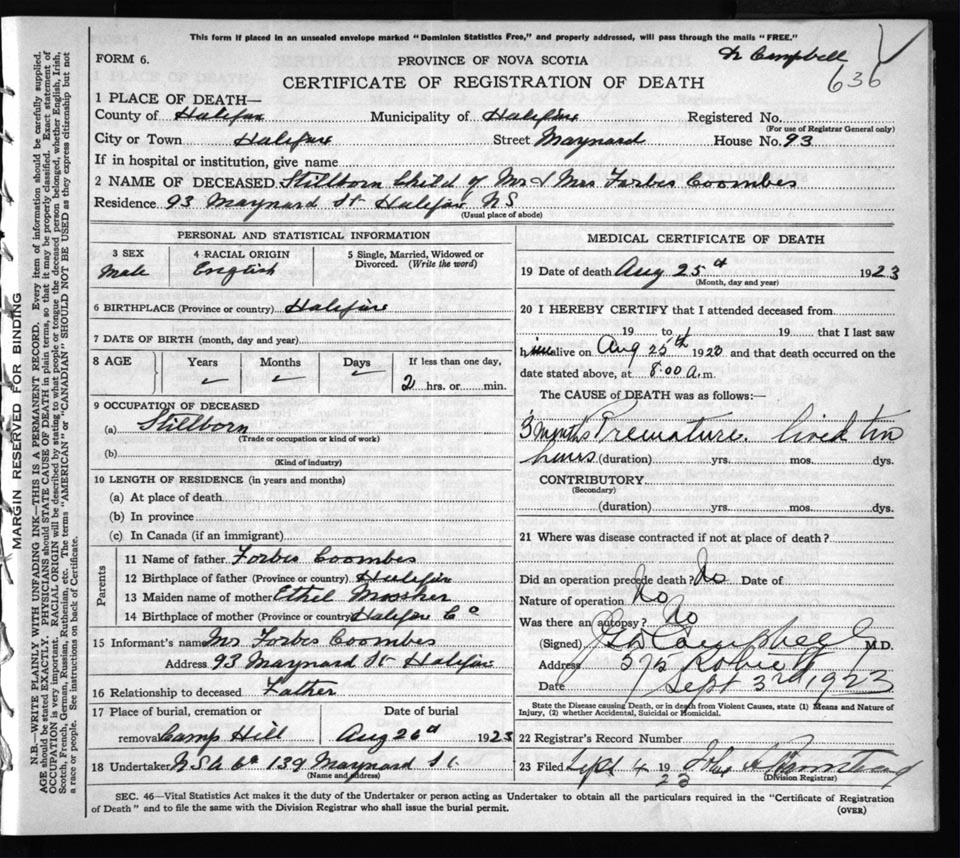 This form if placed in an unsealed envelope marked "Dominion Statistics Free," and properly addressed, will pass through the mails "FREE."
FORM 6. PROVINCE OF NOVA SCOTIA Campbell
636
CERTIFICATE OF REGISTRATION OF DEATH
1 PLACE OF DEATH—
County of Halifax Municipality of Halifax Registered No.
(For use of Registrar General only)
City or Town Halifax Street Maynard House No. 93
If in hospital or institution, give name
2 NAME OF DECEASED Stillborn Child of Mr & Mrs Forbes Coombes
Residence 93 Maynard St Halifax NS
(Usual place of abode)
PERSONAL AND STATISTICAL INFORMATION
3 SEX 4 RACIAL ORIGIN 5 Single, Married, Widowed or Divorced. (Write the word)
Male English
6 BIRTHPLACE (Province or country) Halifax
7 DATE OF BIRTH (month, day and year)
8 AGE Years Months Days If less than one day,
2 hrs. or min.
9 OCCUPATION OF DECEASED
(a) Stillborn
(Trade or occupation or kind of work)
(b)
(Kind of industry)
10 LENGTH OF RESIDENCE (in years and months)
(a) At place of death
(b) In province
(c) In Canada (if an immigrant)
Parents
11 Name of father Forbes Coombes
12 Birthplace of father (Province or country) Halifax
13 Maiden name of mother Ethel Mosher
14 Birthplace of mother (Province or country) Halifax Co
15 Informant's name Mr Forbes Coombes
Address 93 Maynard St Halifax
16 Relationship to deceased Father
17 Place of burial, cremation or removal Camp Hill Date of burial Aug 26 1923
18 Undertaker N S U Co 139 Maynard St
(Name and address)
MEDICAL CERTIFICATE OF DEATH
19 Date of death Aug 25th 1923
(Month, day and year)
20 I HEREBY CERTIFY that I attended deceased from
19 to 19 that I last saw
him alive on Aug 25th 1923 and that death occurred on
date stated above, at 8:00 a.m.
The CAUSE of DEATH was as follows:—
3 months Premature. lived two
hours (duration) yrs. mos. dys.
CONTRIBUTORY
(Secondary)
(duration) yrs. mos. dys.
21 Where was disease contracted if not at place of death?
Did an operation precede death? No Date of
Nature of operation No
Was there an autopsy? No
(Signed) Campbell M.D.
Address 572 Robie St
Date Sept 3rd 1923
State the Disease causing Death, or in death from Violent Causes, state (1) Means and Nature of
Injury, (2) whether Accidental, Suicidal or Homicidal.
22 Registrar's Record Number
23 Filed Sept 4 1923
(Division Registrar)
SEC. 46—Vital Statistics Act makes it the duty of the Undertaker or person acting as Undertaker to obtain all the particulars required in the "Certificate of Registration
of Death" and to file the same with the Division Registrar who shall issue the burial permit. (OVER)
MARGIN RESERVED FOR BINDING
N.B.—WRITE PLAINLY WITH UNFADING INK—THIS IS A PERMANENT RECORD. Every item of information should be carefully supplied.
AGE should be stated EXACTLY. PHYSICIANS should STATE CAUSE OF DEATH in plain terms, so that it may be properly classified. Exact statement of
OCCUPATION is very important. RACIAL ORIGIN will be described by stating to what people or tongue the deceased person belonged, whether English, Irish,
Scotch, French, German, Russian, Ruthenian, etc. The terms "AMERICAN" or "CANADIAN" SHOULD NOT BE USED as they express citizenship but not
a race or people. See instructions on back of Certificate.